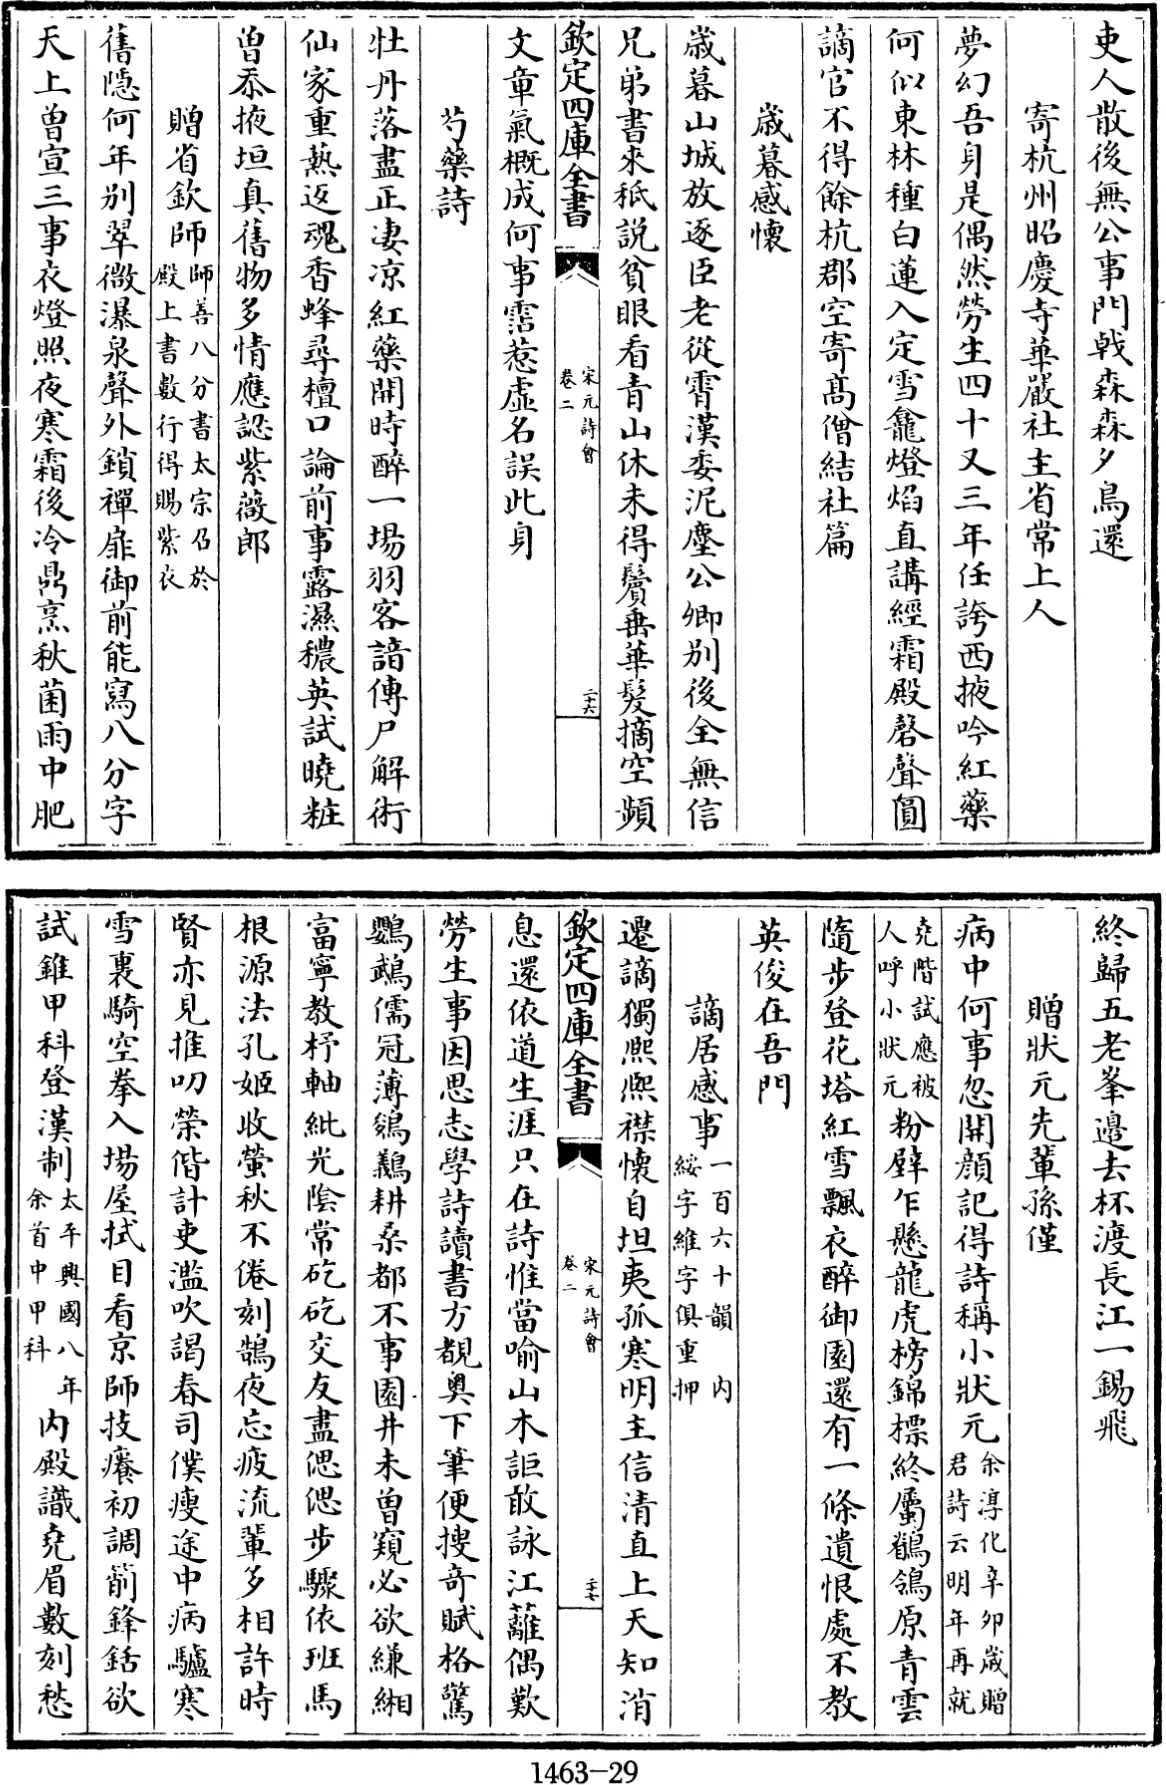 吏人散後無公事門戟森森夕鳥還
寄杭州昭慶寺華嚴社主省常上人
夢幻吾身是偶然勞生四十又三年任誇西掖吟紅藥
何似東林種白蓮入定雪龕燈焰直講經霜殿磬聲圓
謫官不得餘杭郡空寄髙僧結社篇
歳暮感懷
歳暮山城放逐臣老從霄漢委泥塵公卿别後全無信
兄弟書來秪説貧眼看青山休未得鬢垂華髪摘空頻
欽定四庫全書
宋元詩會
卷二
二十六
文章氣概成何事霑惹虛名誤此身
芍藥詩
牡丹落盡正凄凉紅藥開時醉一場羽客諳傳尸解術
仙家重爇返魂香蜂尋檀口論前事露濕穠英試曉粧
曽忝掖垣真舊物多情應認紫薇郎
贈省欽師師善八分書太宗召於
殿上書數行得賜紫衣
舊隠何年别翠微瀑泉聲外鎖禪扉御前能寫八分字
天上曽宣三事衣燈照夜寒霜後冷鼎烹秋菌雨中肥
終歸五老峯邉去杯渡長江一錫飛
贈狀元先輩孫僅
病中何事忽開顔記得詩稱小狀元余淳化辛卯歳贈
君詩云明年再就
堯階試應被
人呼小狀元粉壁乍懸龍虎榜錦標終屬鶺鴒原青雲
隨步登花塔紅雪飄衣醉御園還有一條遺恨處不教
英俊在吾門
謫居感事一百六十韻内
綏字維字俱重押
遷謫獨熙熙襟懷自坦夷孤寒明主信清直上天知消
欽定四庫全書
宋元詩會
卷二
二十七
息還依道生涯只在詩惟當喻山木詎敢詠江蘺偶歎
勞生事因思志學詩讀書方覩奥下筆便搜竒賦格驚
鸚鵡儒冠薄鵕鸃耕桑都不事園井未曽窺必欲縑緗
富寧教杼軸紕光陰常矻矻交友盡偲偲步驟依班馬
根源法孔姬收螢秋不倦刻鵠夜忘疲流輩多相許時
賢亦見推叨榮偕計吏濫吹謁春司僕瘦途中病驢寒
雪裏騎空拳入場屋拭目看京師技癢初調箭鋒銛欲
試錐甲科登漢制太平興國八年
余首中甲科内殿識堯眉數刻愁
1463-29